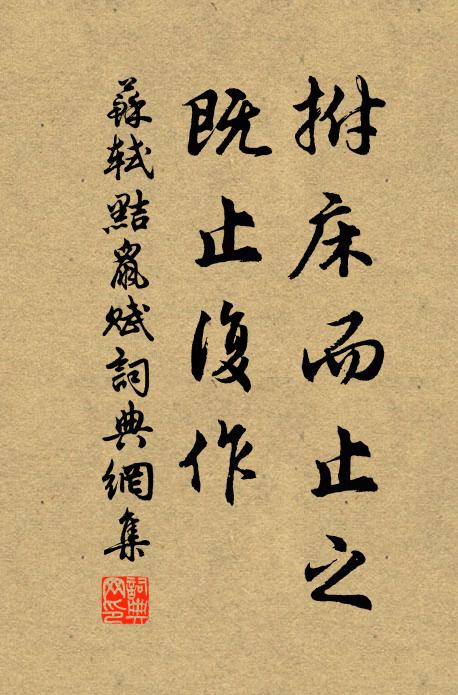 拊床而止之
既止復作
蘇軾黠鼠賦詞典網集
詞典
网印